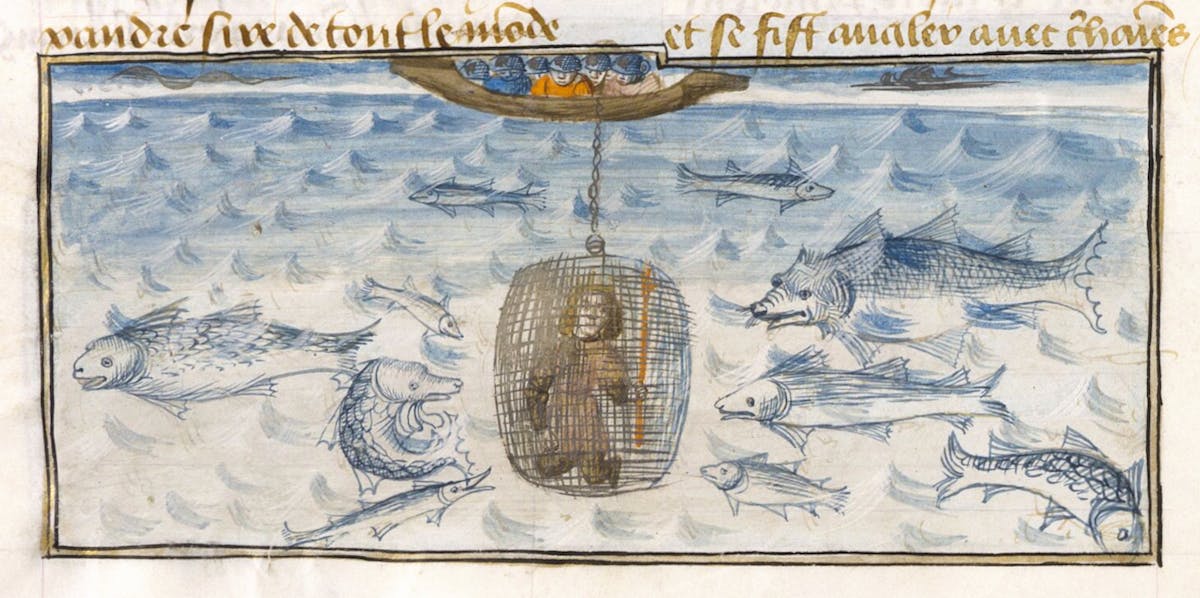 xandre sire de tout le mōde et se fist avaler avec chaiēs